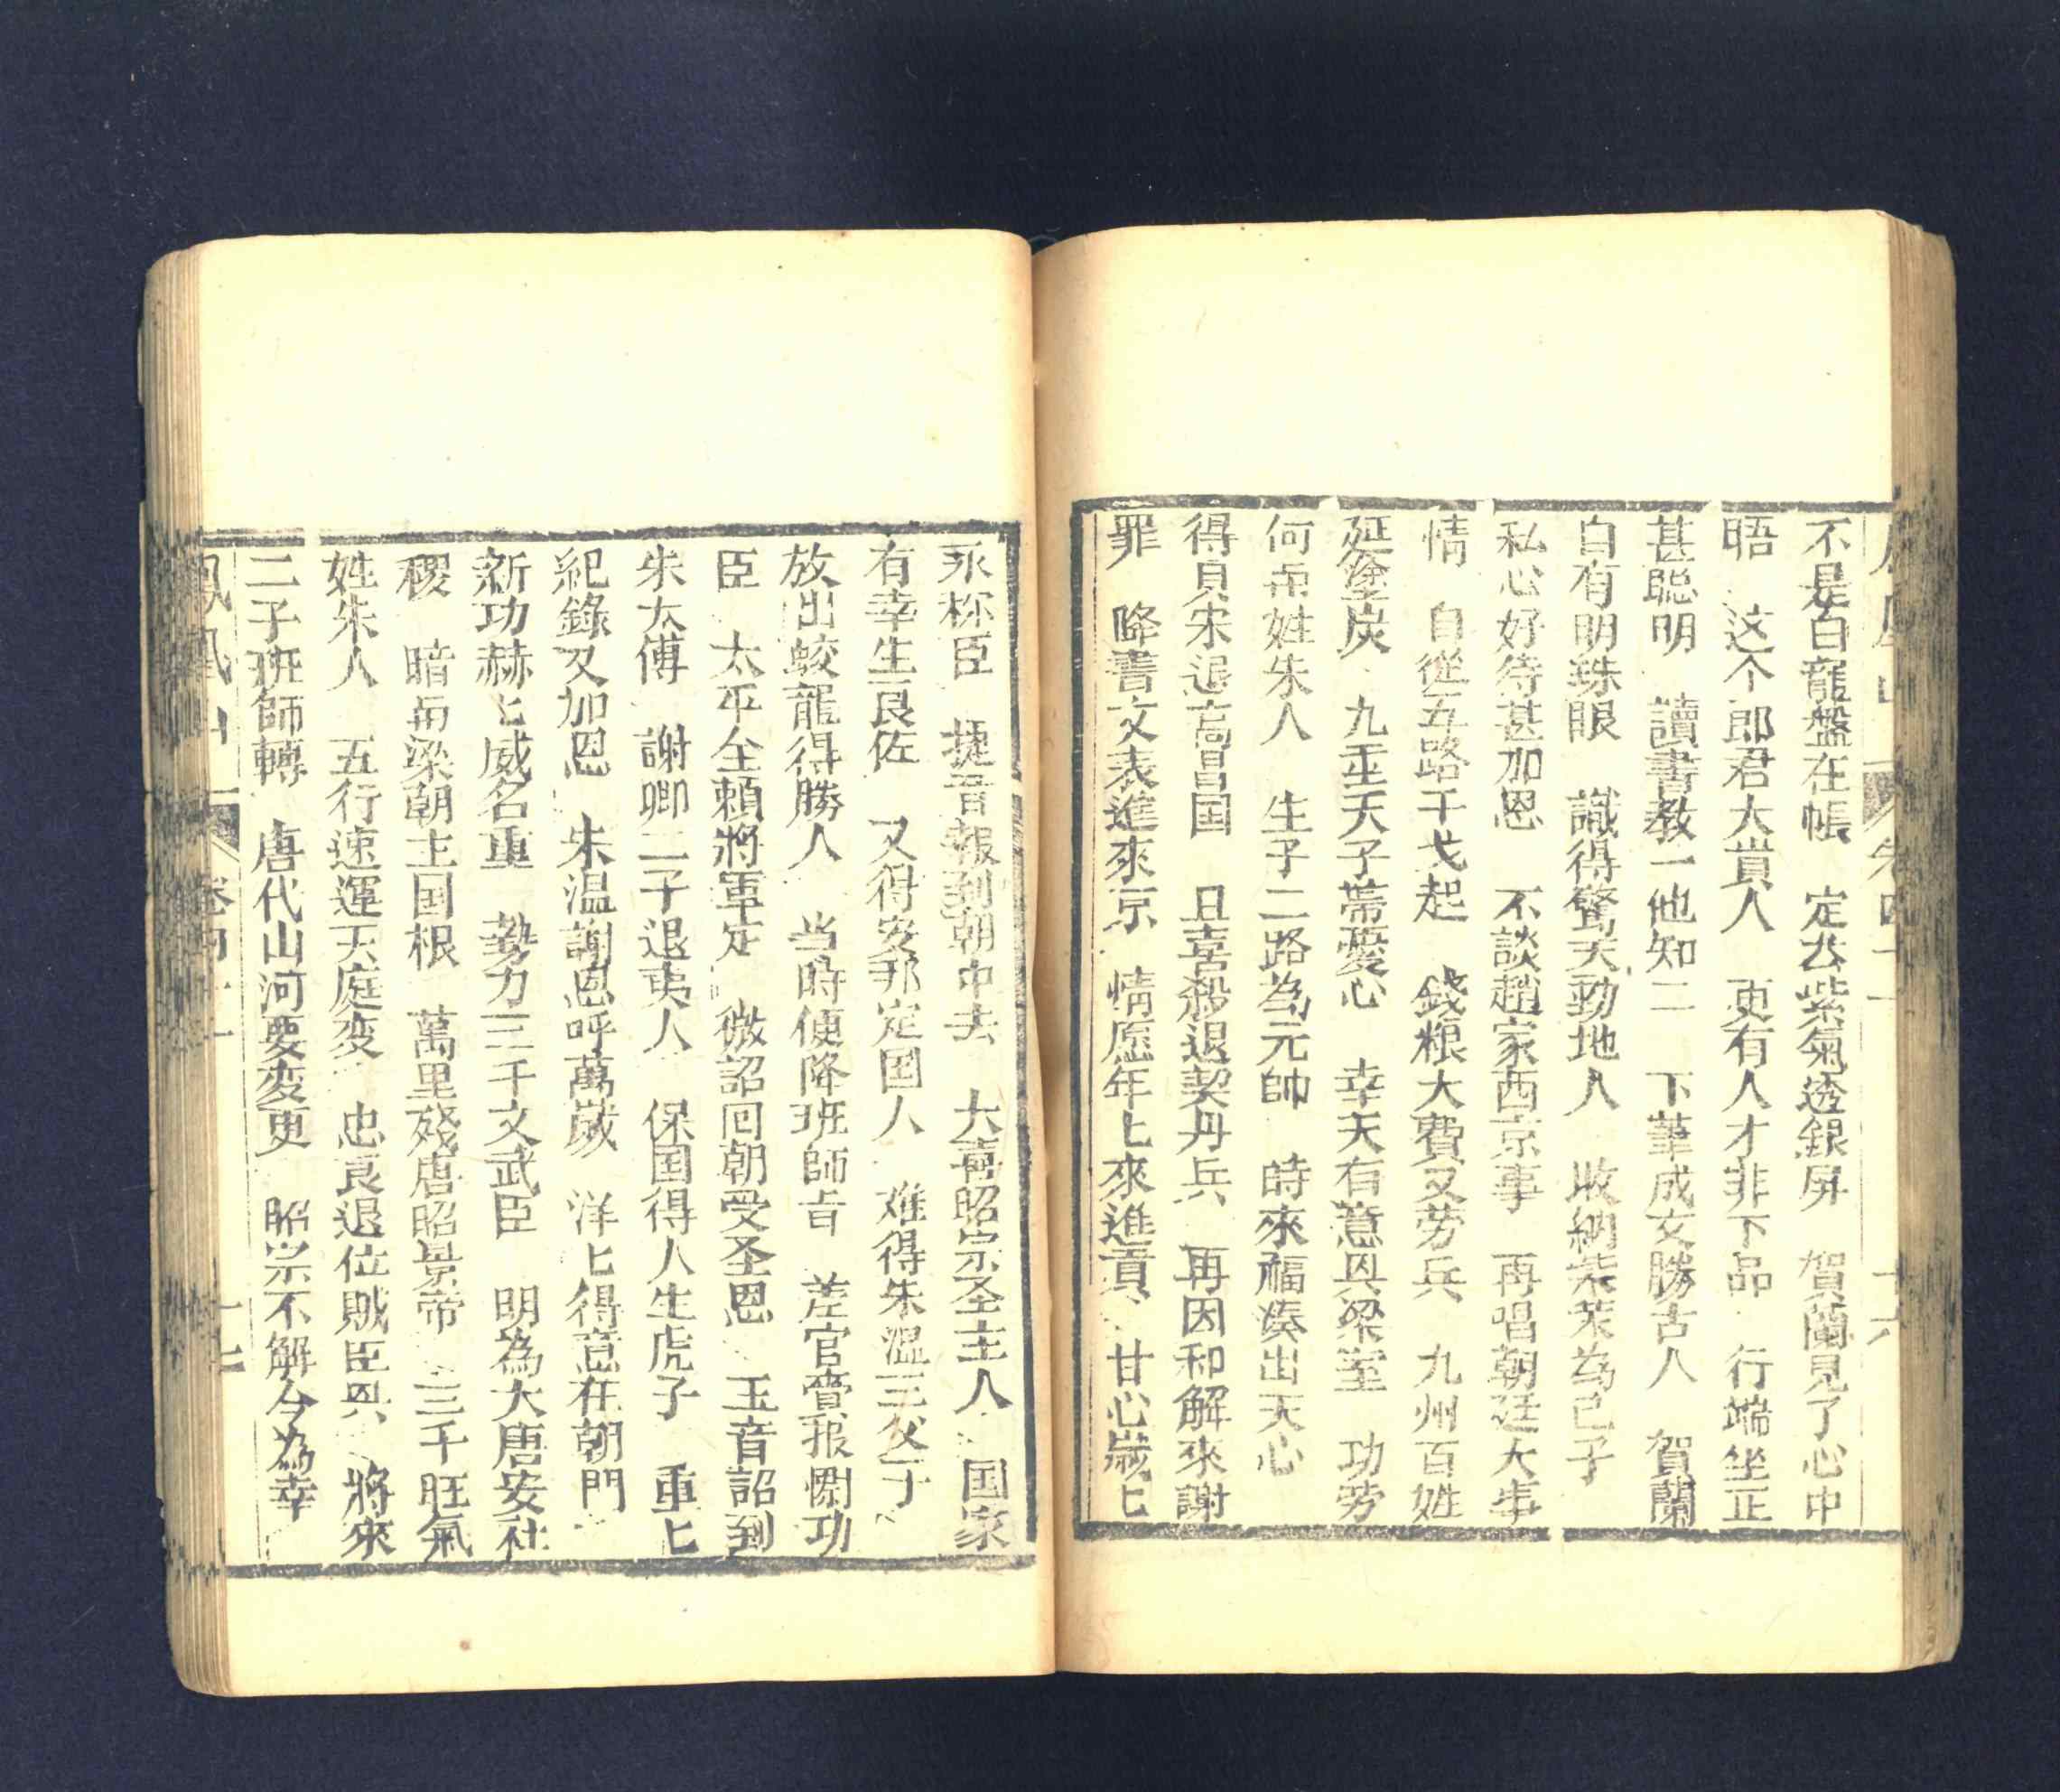 不是白龍盤在帳　定去紫氣透銀屏　賀蘭見了心中
晤　这个郎君大貴人　更有人才非下品　行端坐正
甚聰明　讀書教一他知二　下筆成文勝古人　賀蘭
自有明珠眼　識得驚天動地人　收納為己子
私心好待甚加恩　不談趙家西京事　再唱朝廷大事
情　自從五路干戈起　錢粮大費又劳兵　九州百姓
延塗炭　九重天子帶憂心　幸天有意興梁室　功劳
何帝姓朱人　生子二路為元帥　時來福湊出天心
得宋退高昌国　且喜殺退契丹兵　再因和解來謝
罪　降書文表進來京　情愿年匕來進貢　甘心歲匕
永称臣　捷音報到朝中去　大喜昭宗圣主人　国家
有幸生良佐　又得安邦定国人　难得朱温三父子
放出蛟龍得勝人　当時便降班師旨　差官賫报酬功
臣　太平全賴將軍定　微詔回朝受圣恩　玉音詔到
朱太傅　謝卿二子退夷人　保国得人生虎子　重匕
紀錄又加恩　朱温謝恩呼萬歲　洋匕得意在朝門
新功赫匕威名重　勢力三千文武臣　明為大唐安社
稷　暗帝梁朝主国根　萬里殘唐昭景帝　三千旺氣
姓朱人　五行速運天庭变　忠良退位賊臣興　將來
二子班師轉　唐代山河要变更　昭宗不解今為幸
鳳凰山　卷四十一　十七